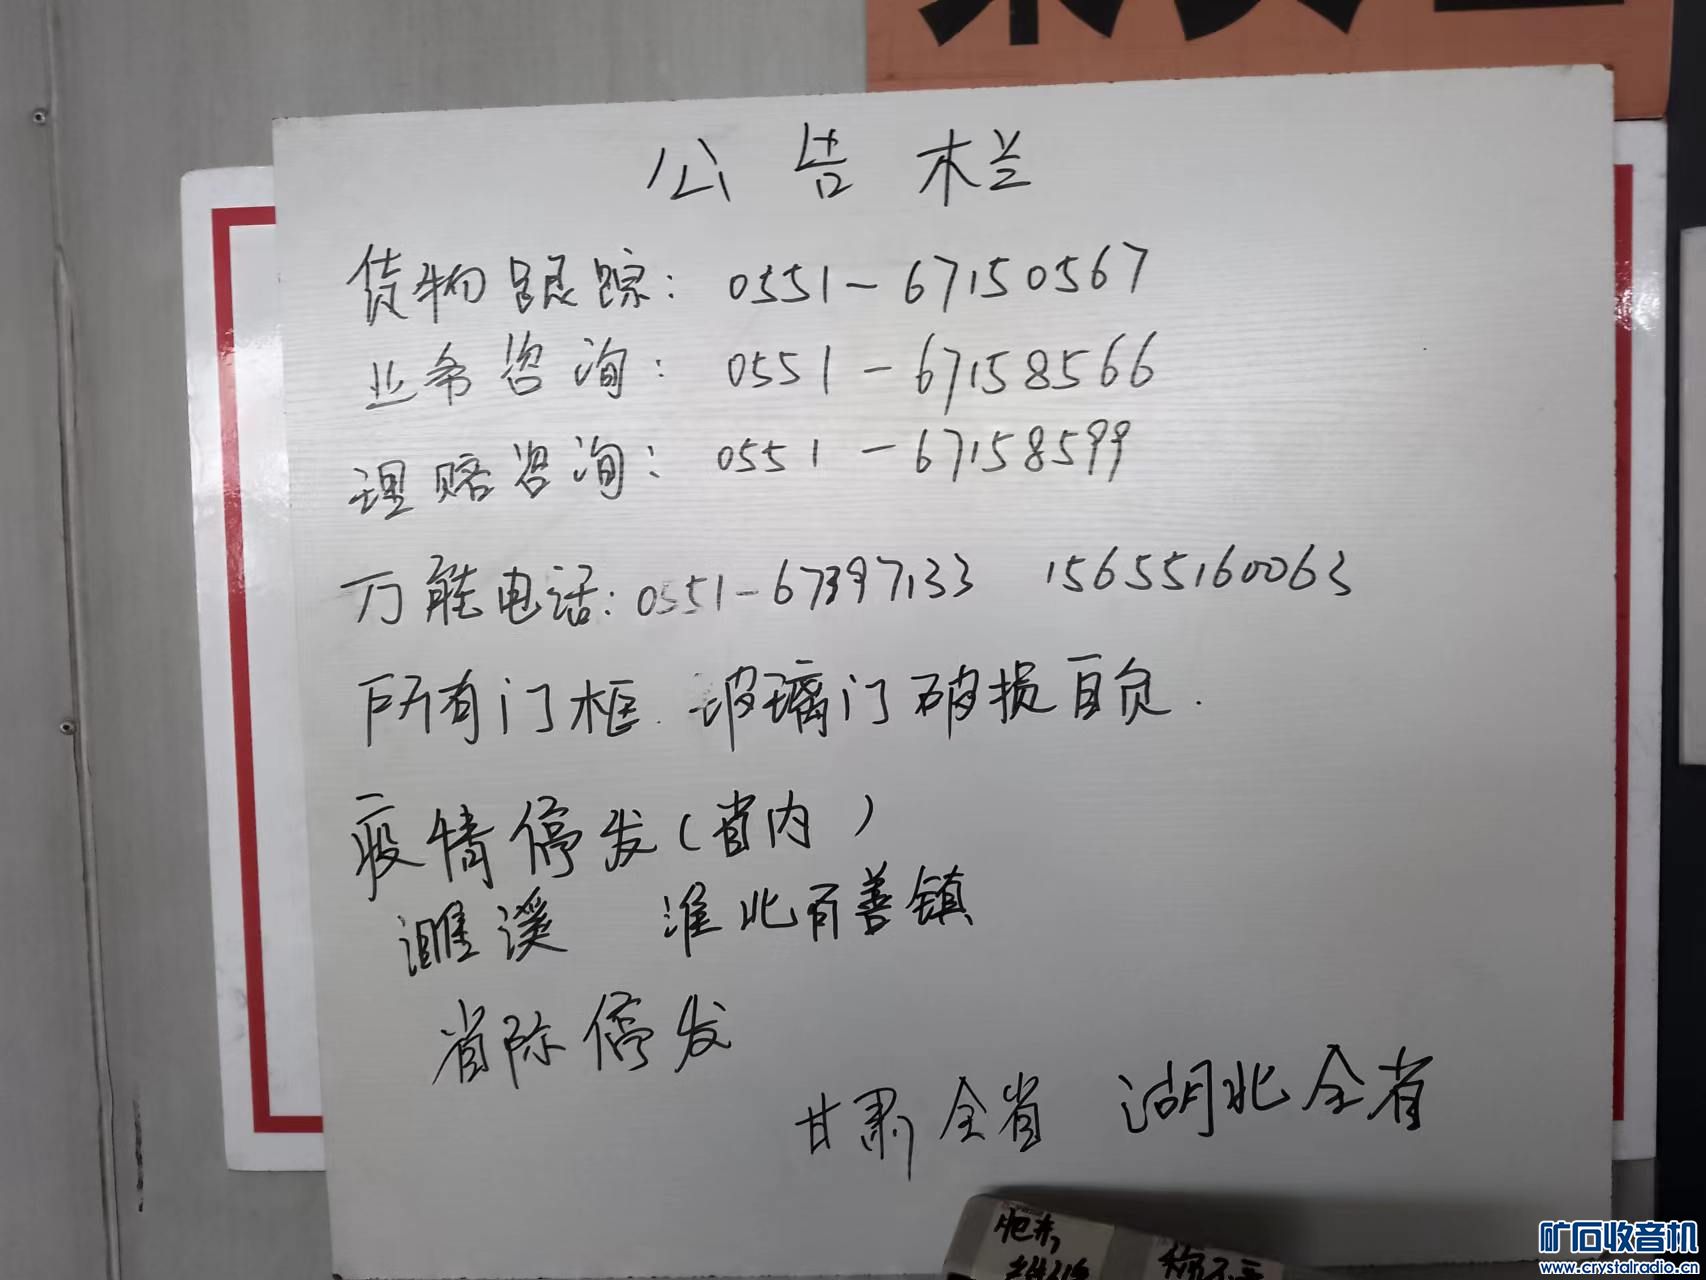 公告栏
货物跟踪: 0551-67150567
业务咨询: 0551-67158566
理赔咨询: 0551-67158599
万能电话: 0551-67397133 15655160063
所有门框. 玻璃门破损自负.
疫情停发(省内)
濉溪 淮北百善镇
省际停发
甘肃全省 湖北全省
矿石收音机
www.crystalradio.cn